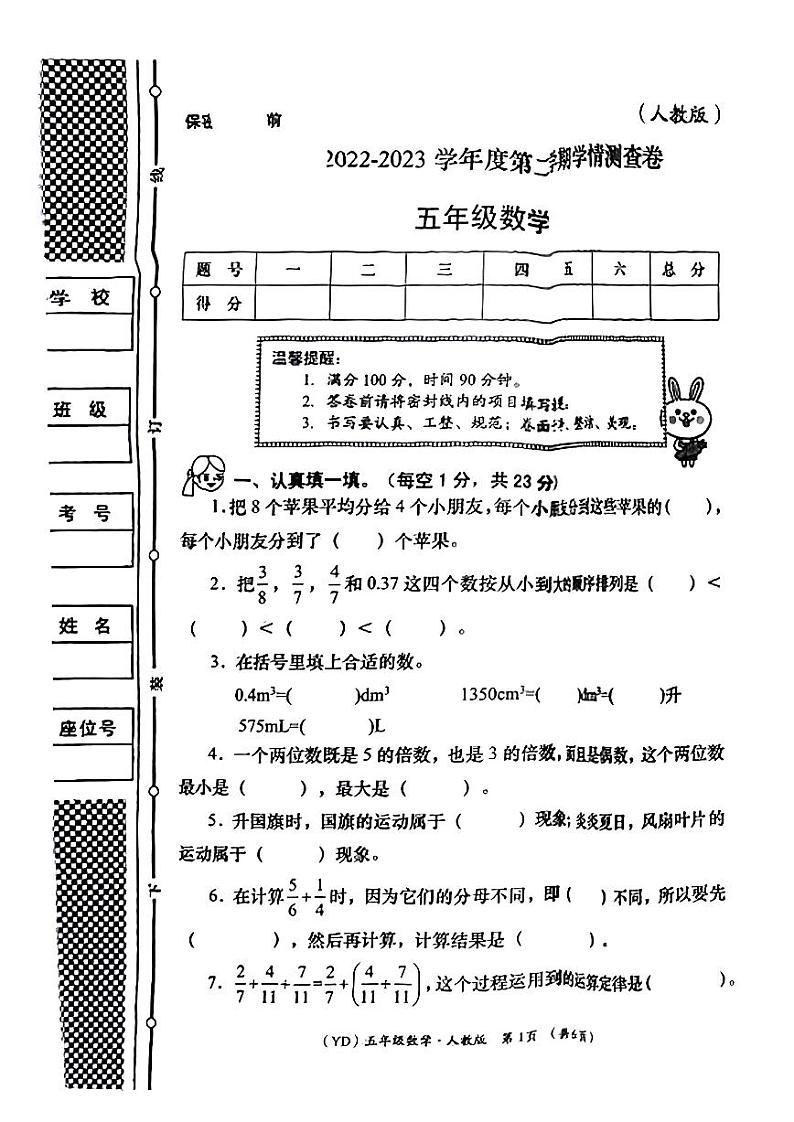 （人教版）
2022-2023 学年度第二学期学情调查卷
五年级数学
题 号 一 二 三 四 五 六 总 分
得 分
温馨提醒：
1. 满分 100 分，时间 90 分钟。
2. 答卷前请将密封线内的项目填写
3. 书写要认真、工整、规范；卷面 整洁、美观。
一、认真填一填。（每空 1 分，共 23 分）
1.把 8 个苹果平均分给 4 个小朋友，每个小朋友分到这些苹果的（ ），
每个小朋友分到了（ ）个苹果。
2．把 3/8，3/7，4/7 和 0.37 这四个数按从小到大的顺序排列是（ ）＜
（ ）＜（ ）＜（ ）。
3．在括号里填上合适的数。
0.4m³=( )dm³ 1350cm³=( )dm³=( )升
575mL=( )L
4．一个两位数既是 5 的倍数，也是 3 的倍数，而且是偶数，这个两位数
最小是（ ），最大是（ ）。
5．升国旗时，国旗的运动属于（ ）现象；炎炎夏日，风扇叶片的
运动属于（ ）现象。
6．在计算 5/6+1/4 时，因为它们的分母不同，即（ ）不同，所以要先
（ ），然后再计算，计算结果是（ ）.
7．2/7+4/11+7/11=2/7+(4/11+7/11)，这个过程运用到的运算定律是( )。
（YD）五年级数学·人教版 第 1 页 （共 6 页）
学 校
班 级
考 号
姓 名
座位号
线
订
装
下